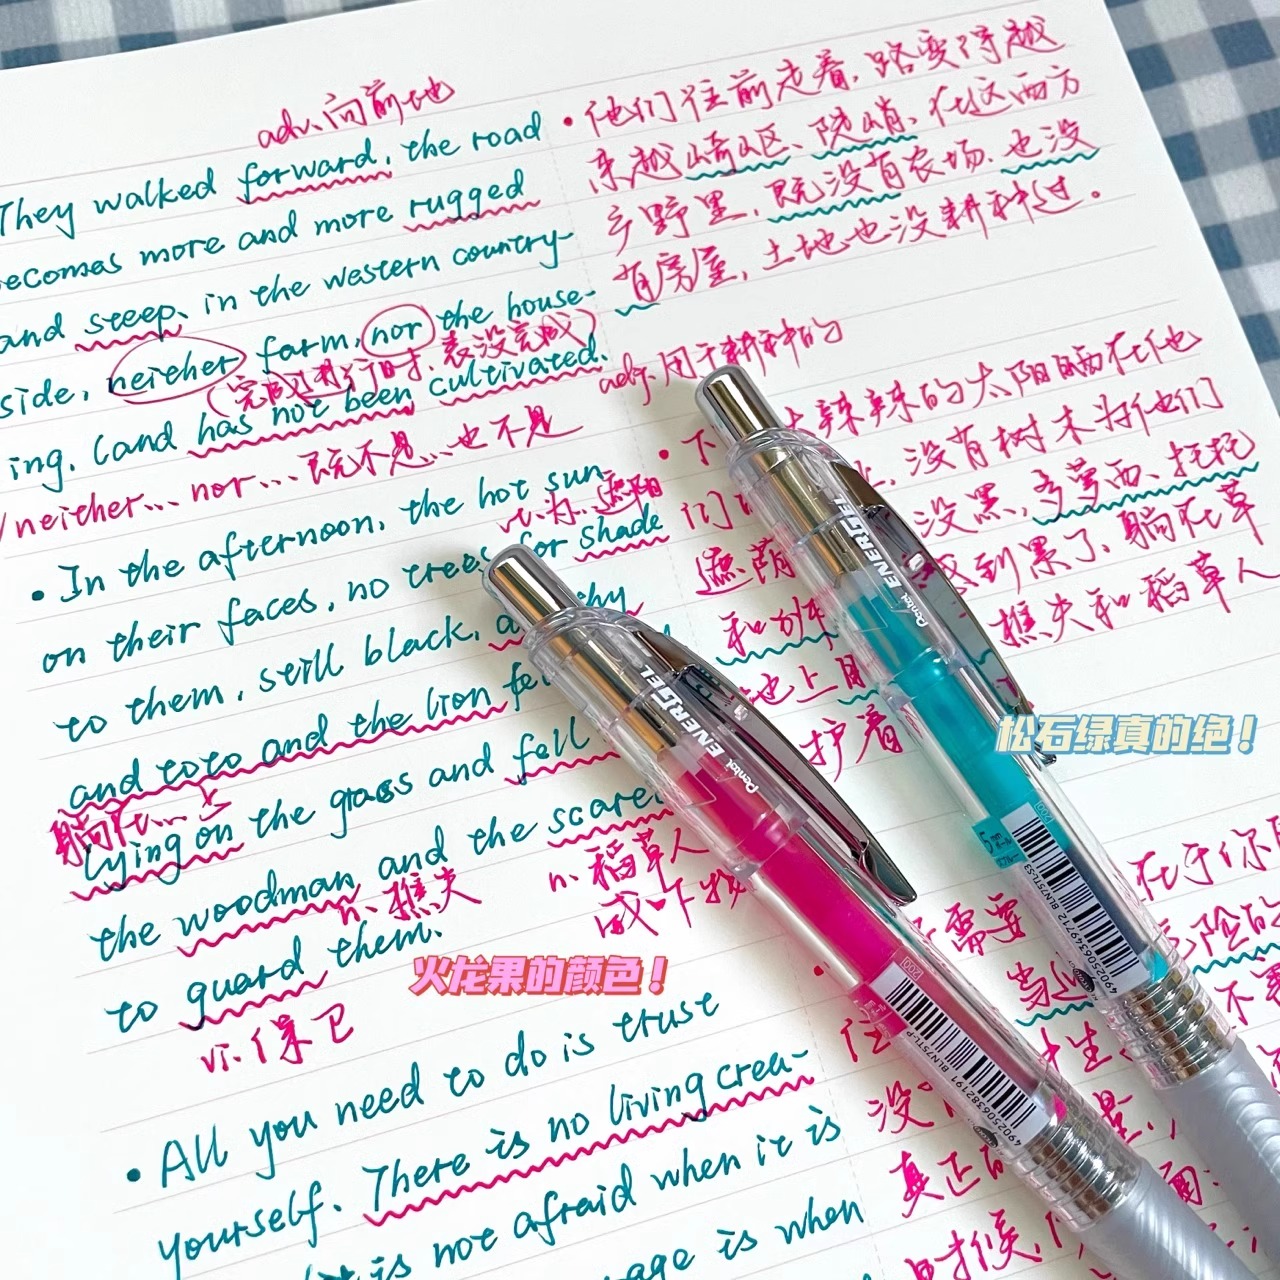 adv. 向前地
They walked forward, the road
ecomes more and more rugged
and steep, in the western country-
side, neither farm, nor the house-
(完成进行时, 表没完成)
ing. (and has not been cultivated.
neither... nor... 既不是...也不是
• In the afternoon, the hot sun
vt.为...遮阳
on their faces, no trees for shade
to them, still black,
and toto and the lion fe
躺在...上
lying on the grass and fell
the woodman and the scare
n. 樵夫
n. 稻草人
to guard them.
vi. 保卫
• All you need to do is trust
yourself. There is no living crea-
it is not afraid when it is
age is when
• 他们往前走着, 路变得越
来越崎岖、陡峭、在这西方
乡野里, 既没有农场, 也没
有房屋, 土地也没耕种过。
adj. 用于耕种的
• 下 辣辣的太阳晒在他
们 没有树木为他们
遮荫 没黑, 多萝西、托托
和 感到累了, 躺在草
地上 樵夫和稻草人
护着
在于你
需要 危险的
当
没
真正的
时候,
火龙果的颜色！
松石绿真的绝！
Pentel ENERGEL
4902506382191 BLN75TL-P
Pentel ENERGEL
4902506349712 BLN75TL-S3